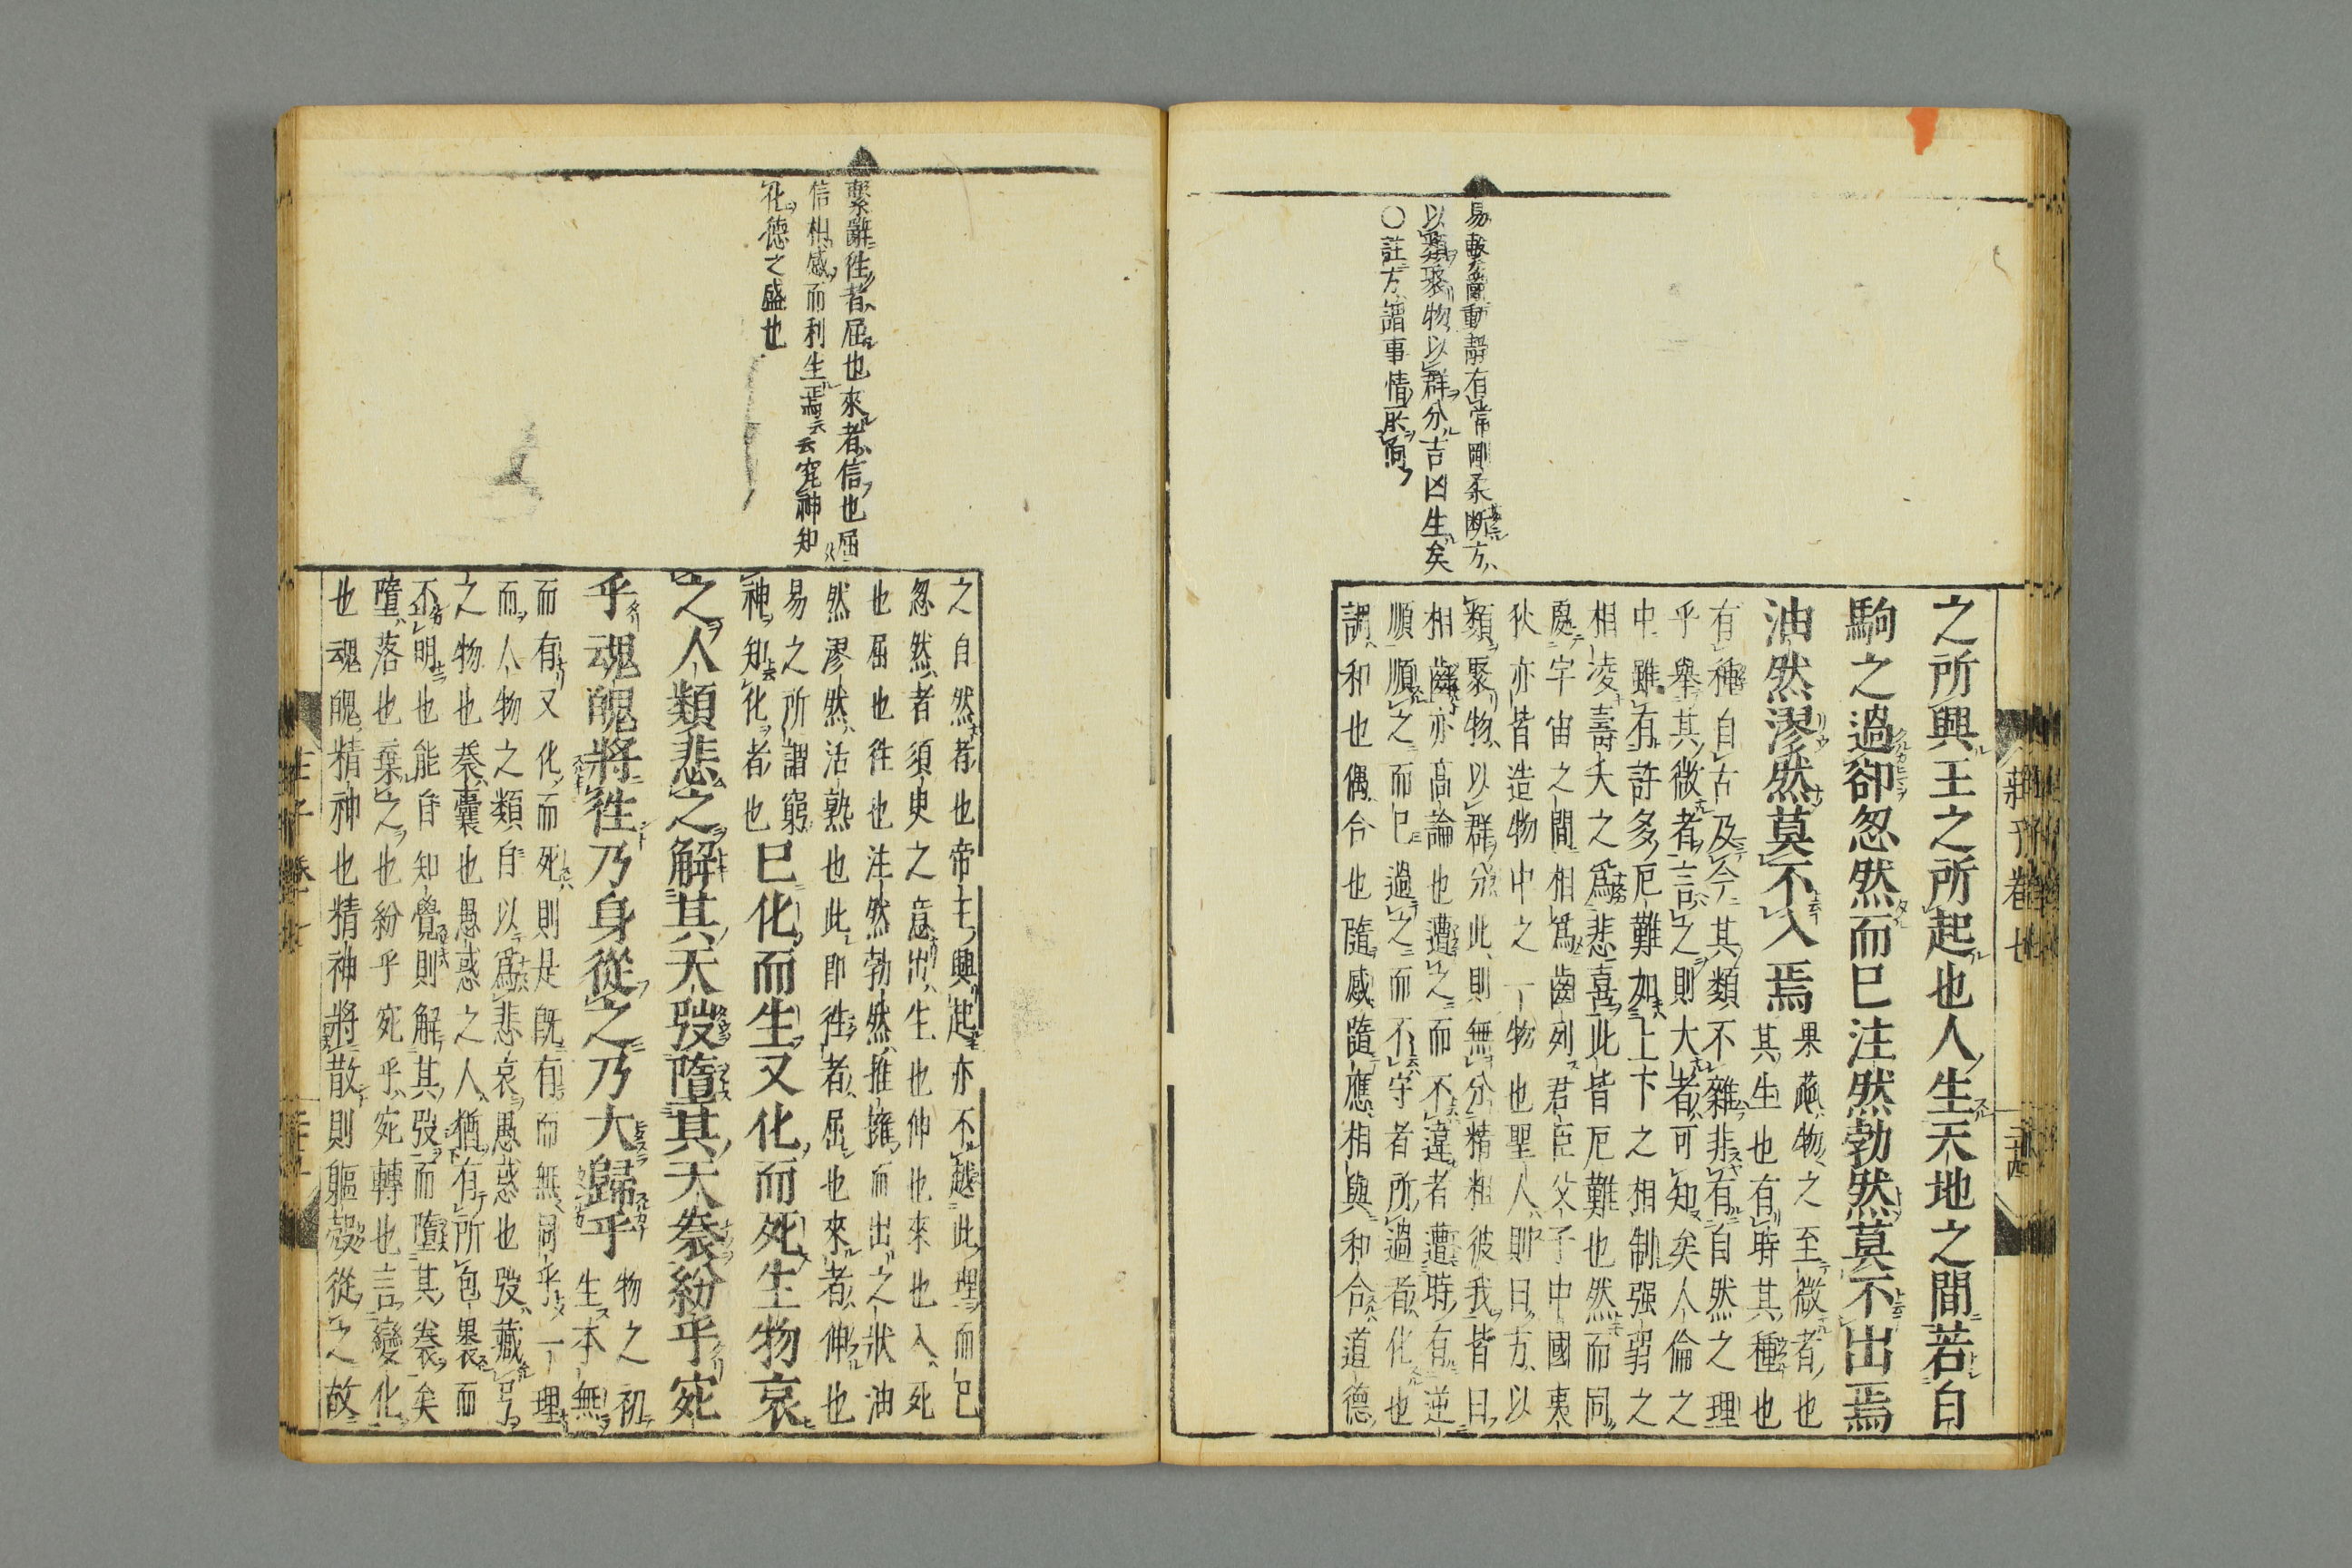 易繫辭動靜有常剛柔斷方
以類聚物以群分吉凶生矣
○註方謂事情所向
之所興王之所起也人生天地之間若白
駒之過郤忽然而已注然勃然莫不出焉
油然漻然莫不入焉
果蓏物之至微者也
其生也有時其種也
有種自古及今其類不雜非有自然之理
乎舉其微者言之則大者可知矣人倫之
中雖有許多厄難加上下之相制强弱之
相凌壽夭之爲悲喜此皆厄難也然而同
處宇宙之間相爲齒列君臣父子中國夷
狄亦皆造物中之一物也聖人則曰方以
類聚物以群分此則無分精粗彼我皆曰
相齒亦高論也遭之而不違者遭時有逆
順順之而已過之而不守者所過者化也
調和也偶合也隨感隨應相與和合道德
莊子卷七
繫辭往者屈也來者信也屈
信相感而利生焉云云窮神知
化德之盛也
之自然者也帝王興起亦不越此理而已
忽然者須臾之意出生也伸也來也入死
也屈也往也注然勃然推擁而出之狀油
然漻然活熟也此即往者屈也來者伸也
易之所謂窮
神知化者也
已化而生又化而死生物哀
之人類悲之解其天弢墮其天袠紛乎宛
乎魂魄將往乃身從之乃大歸乎
物之初
生本無
而有又化而死則是既有而無同乎一理
而人物之類自以爲悲哀愚惑也弢藏弓
之物也袠囊也愚惑之人猶有所包裹而
不明也能自知覺則解其弢而墮其袠矣
墮落也棄之也紛乎宛乎宛轉也言變化
也魂魄精神也精神將散則軀殼從之故